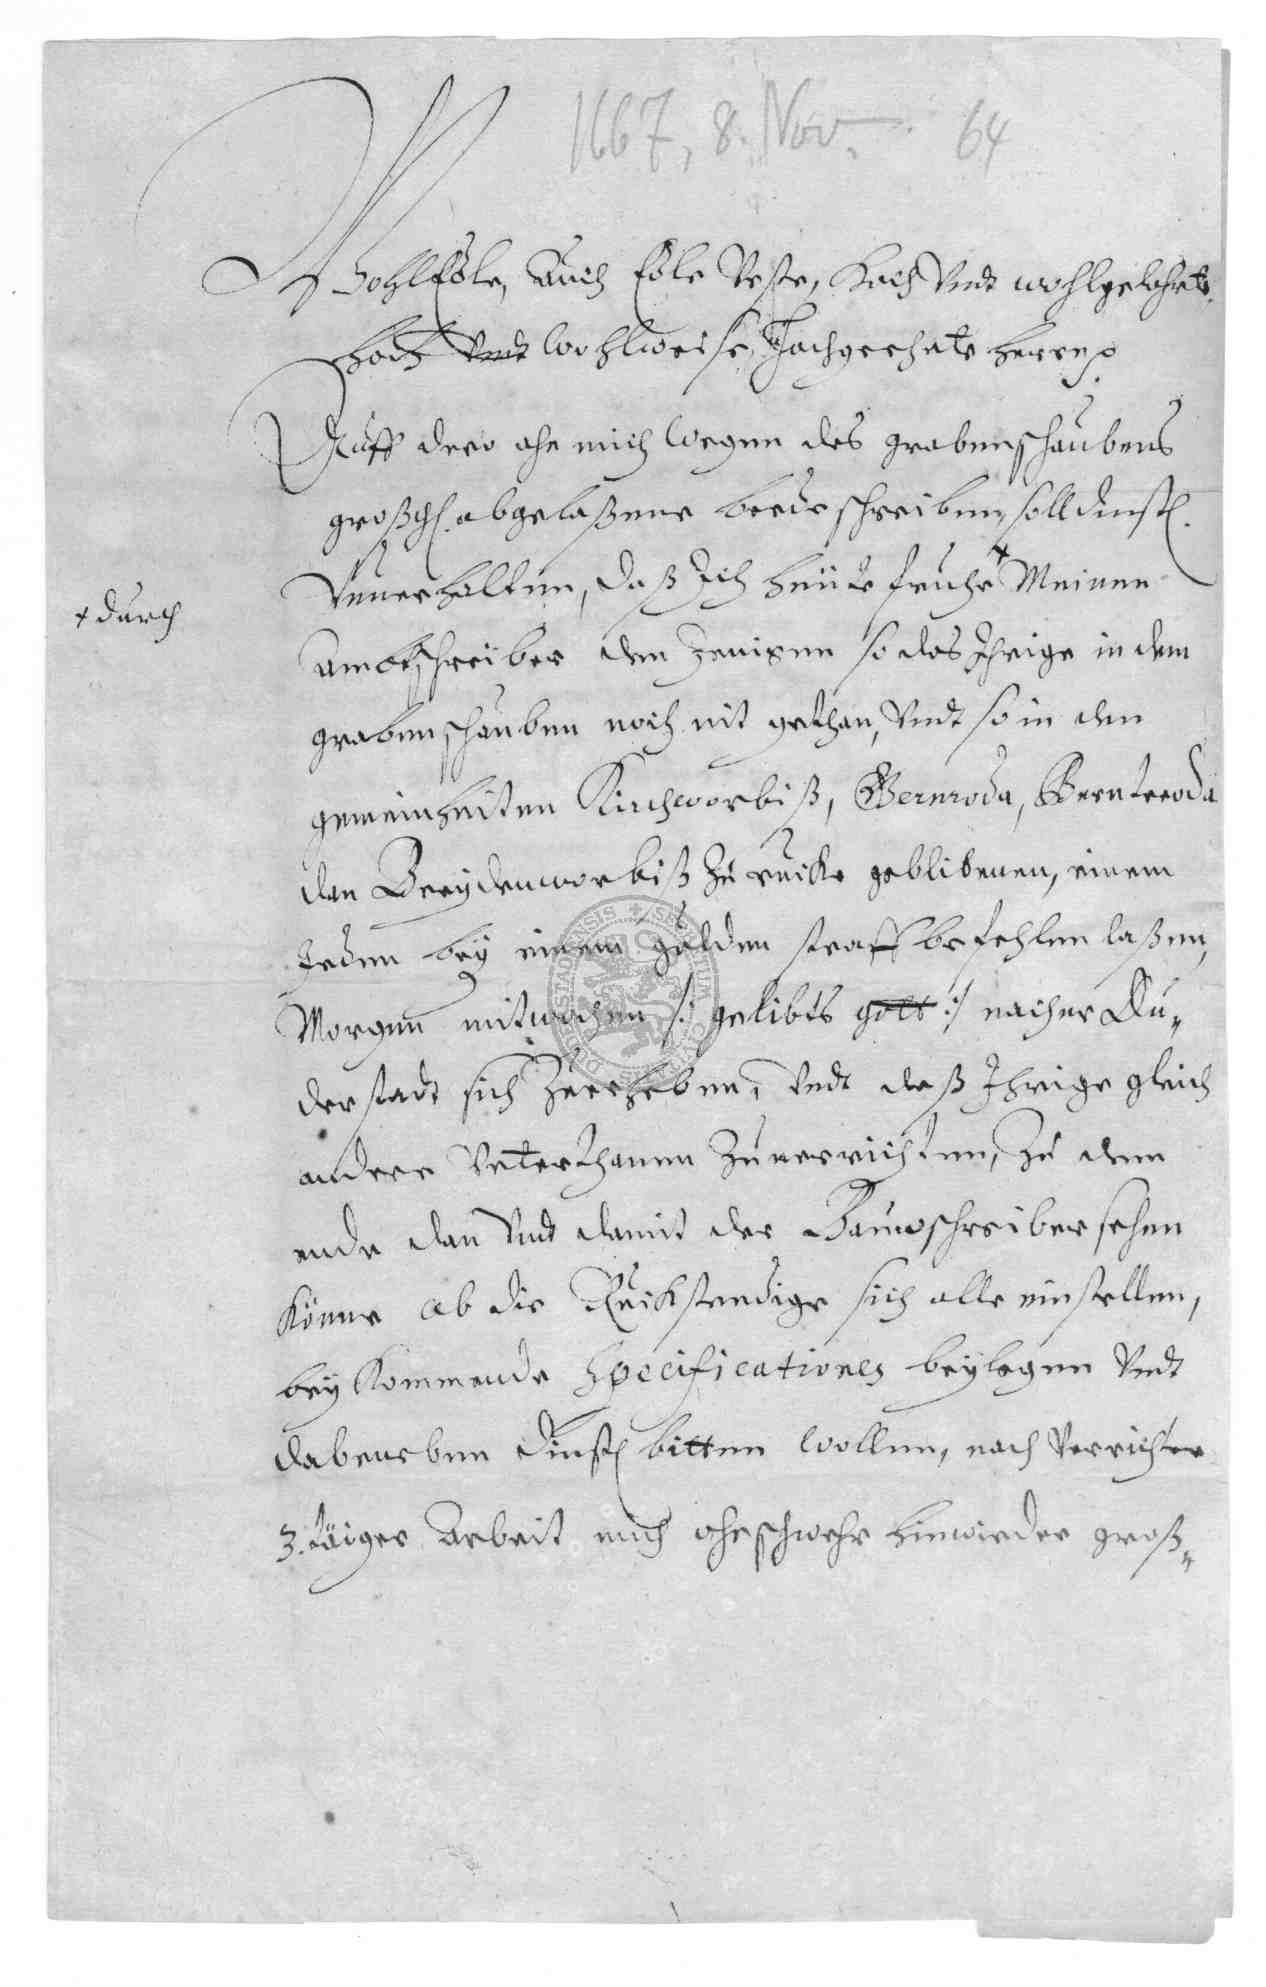 1667, 8. Nov. 64
WohlEdle, Auch Edle Veste, Hoch Vndt wohlgelahrte,
hoch Vndt Wohlweise, Hochgeehrte herren
Auff dero ahn mich wegen des grabenschaubens
großgl. abgelaßene beede schreiben, soll dinstl.
Vnuerhalten, daß Ich heüte fruhe + Meinen
+ durch
Ambtschreiber den Jenigen so das Ihrige in dem
grabenschauben noch nit gethan, Vndt so in den
gemeinheiten Kirchworbiß, Bernroda, Berntroda
dan Breydenworbiß Zu rucke geblibenen, einem
Jeden bey einem gulden straff befehlen laßen,
Morgen mitwochen /: geliebts gott :/ nacher Du„
derstadt sich Zuerheben, Vndt daß Ihrige gleich
andere Vnterthanen Zuuerrichten, Zu dem
ende dan Vndt damit der Bauwschreiber sehen
könne ob die Ruckstendige sich alle einstellen,
bey kommende Specificationes beylegen Vndt
dabeneben dinstl. bitten wollen, nach Verrichter
3. täiger Arbeit mich ohnschwehr hinwieder groß„